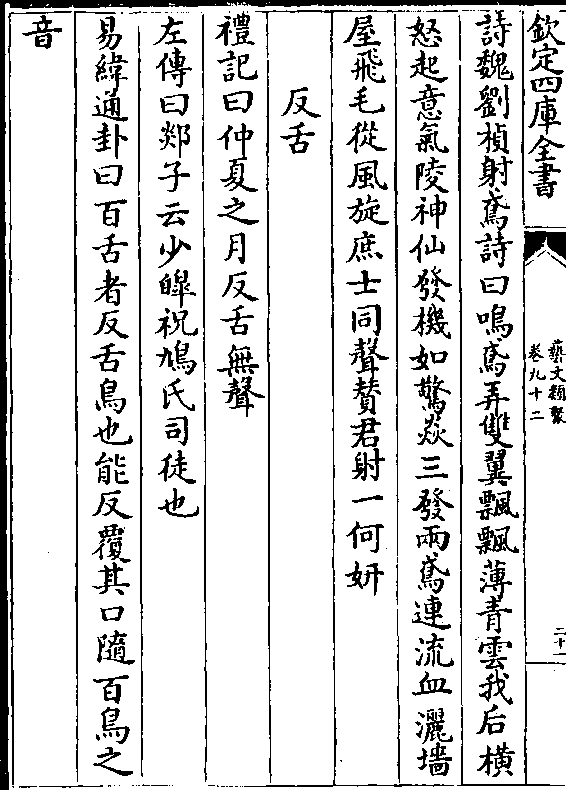 欽定四庫全書
藝文類聚
卷九十二
二十一
詩魏劉楨射鳶詩曰鳴鳶弄雙翼飄飄薄青雲我后横
怒起意氣陵神仙發機如驚焱三發兩鳶連流血灑墻
屋飛毛從風旋庶士同聲賛君射一何妍
反舌
禮記曰仲夏之月反舌無聲
左傳曰郯子云少皥祝鳩氏司徒也
易緯通卦曰百舌者反舌鳥也能反覆其口隨百鳥之
音